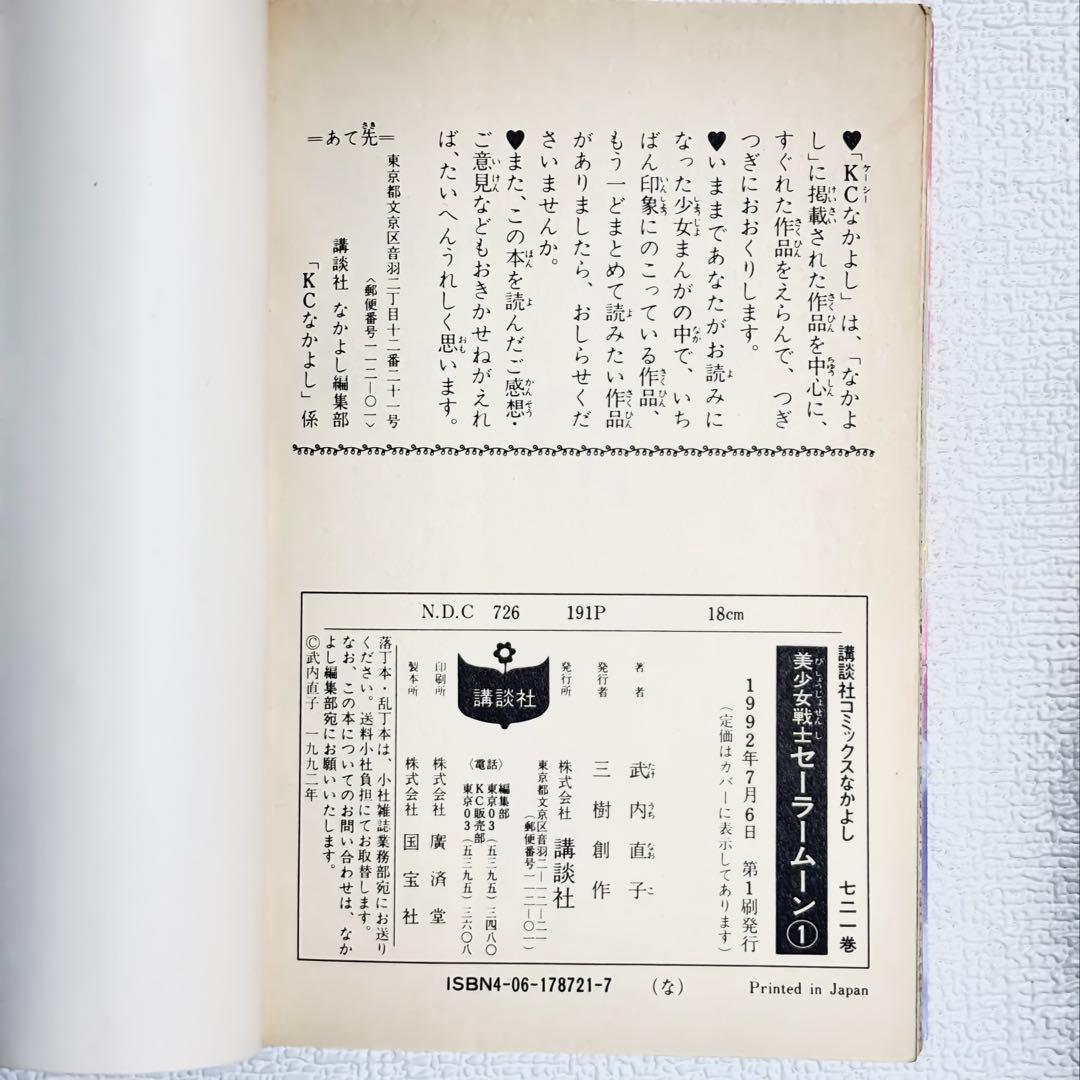 ♥「KCなかよし」は、「なかよ
し」に掲載された作品を中心に、
すぐれた作品をえらんで、つぎ
つぎにおおくりします。
♥いままであなたがお読みに
なった少女まんがの中で、いち
ばん印象にのこっている作品、
もう一どまとめて読みたい作品
がありましたら、おしらせくだ
さいませんか。
♥また、この本を読んだご感想・
ご意見などもおきかせねがえれ
ば、たいへんうれしく思います。
=あて先=
東京都文京区音羽二丁目十二番二十一号
〈郵便番号一一二-〇一〉
講談社 なかよし編集部
「KCなかよし」係
N.D.C 726 191P 18cm
講談社コミックスなかよし 七二一巻
美少女戦士セーラームーン①
1992年7月6日 第1刷発行
(定価はカバーに表示してあります)
著者 武内直子
発行者 三樹創作
発行所 株式会社 講談社
東京都文京区音羽二-一二-二一
(郵便番号一一二-〇一)
講談社
〈電話〉
編集部
東京03(五三九五)三四八〇
KC販売部
東京03(五三九五)三六〇八
印刷所 株式会社 廣済堂
製本所 株式会社 国宝社
落丁本・乱丁本は、小社雑誌業務部宛にお送り
ください。送料小社負担にてお取替します。
なお、この本についてのお問い合わせは、なか
よし編集部宛にお願いいたします。
©武内直子 一九九二年
ISBN4-06-178721-7 (な) Printed in Japan